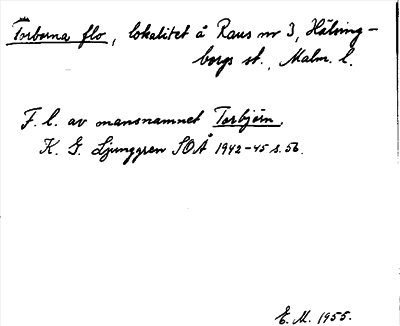 Torberna flo, lokalitet å Raus nr 3, Hälsing-
borgs st., Malm. l.
F. l. av mansnamnet Torbjörn.
K. G. Ljunggren SOÅ 1942-45 s. 56.
E. M. 1955.